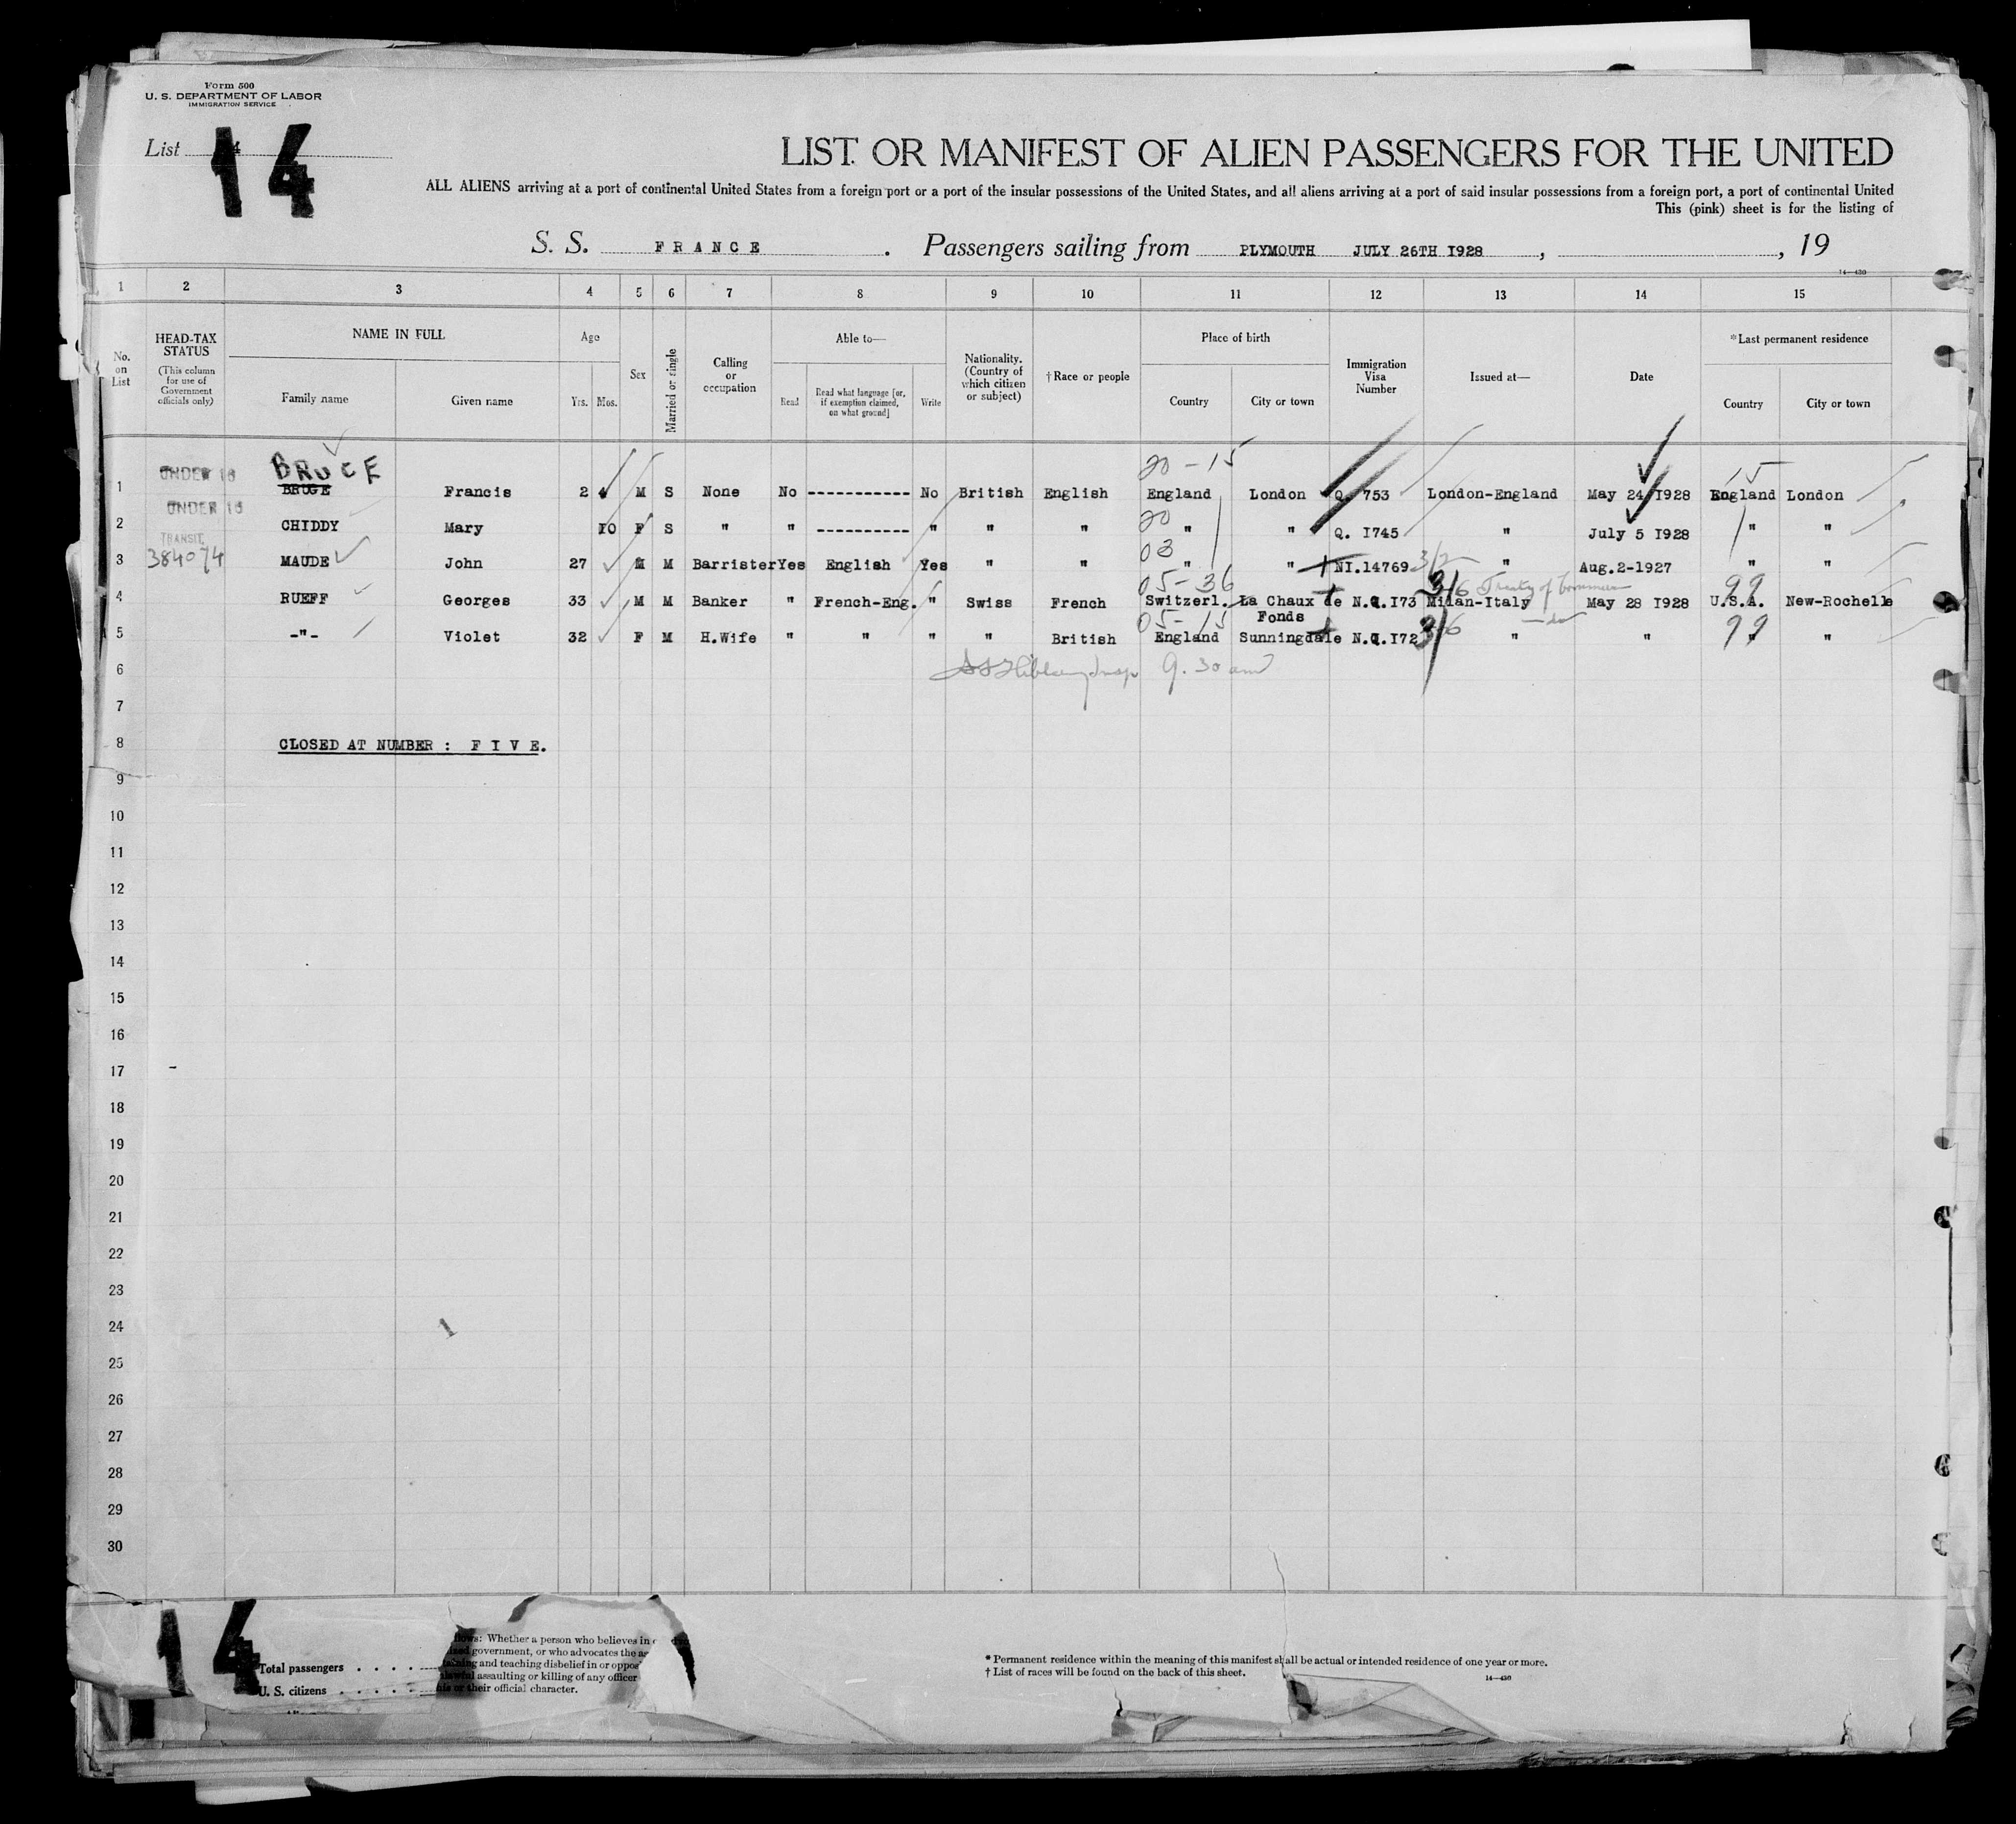 Form 500
U. S. DEPARTMENT OF LABOR
IMMIGRATION SERVICE
List 14
LIST OR MANIFEST OF ALIEN PASSENGERS FOR THE UNITED
ALL ALIENS arriving at a port of continental United States from a foreign port or a port of the insular possessions of the United States, and all aliens arriving at a port of said insular possessions from a foreign port, a port of continental United
This (pink) sheet is for the listing of
S. S. FRANCE. Passengers sailing from PLYMOUTH JULY 26TH 1928, , 19
14—430
1 2 3 4 5 6 7 8 9 10 11 12 13 14 15
No. on List
HEAD-TAX STATUS
(This column for use of Government officials only)
NAME IN FULL
Family name Given name
Age
Yrs. Mos.
Sex
Married or single
Calling or occupation
Able to—
Read
Read what language [or, if exemption claimed, on what ground]
Write
Nationality. (Country of which citizen or subject)
†Race or people
Place of birth
Country City or town
Immigration Visa Number
Issued at—
Date
*Last permanent residence
Country City or town
UNDER 16 BRUCE 20-15 15
1 BRUGE Francis 2 M S None No ----------- No British English England London Q. 753 London-England May 24 1928 England London
UNDER 16
2 CHIDDY Mary 10 F S " " ----------- " " " 20 " " Q. 1745 " July 5 1928 " "
TRANSIT
3 384074 MAUDE John 27 M M Barrister Yes English Yes " " 03 " " NI.14769 3/2 " Aug.2-1927 " "
05-36 3/6 Treaty of Commerce 99
4 RUEFF Georges 33 M M Banker " French-Eng. " Swiss French Switzerl. La Chaux de Fonds N.Q.173 Milan-Italy May 28 1928 U.S.A. New-Rochelle
05-15 3/6 -do 99
5 -"- Violet 32 F M H.Wife " " " " British England Sunningdale N.Q.172 " " " "
6 9.30 am
7
8 CLOSED AT NUMBER : F I V E.
9
10
11
12
13
14
15
16
17
18
19
20
21
22
23
24
25
26
27
28
29
30
14
Total passengers . . . .
U. S. citizens . . . . .
Whether a person who believes in
government, or who advocates the
and teaching disbelief in or
assaulting or killing of any officer
or their official character.
* Permanent residence within the meaning of this manifest shall be actual or intended residence of one year or more.
† List of races will be found on the back of this sheet.
14—430